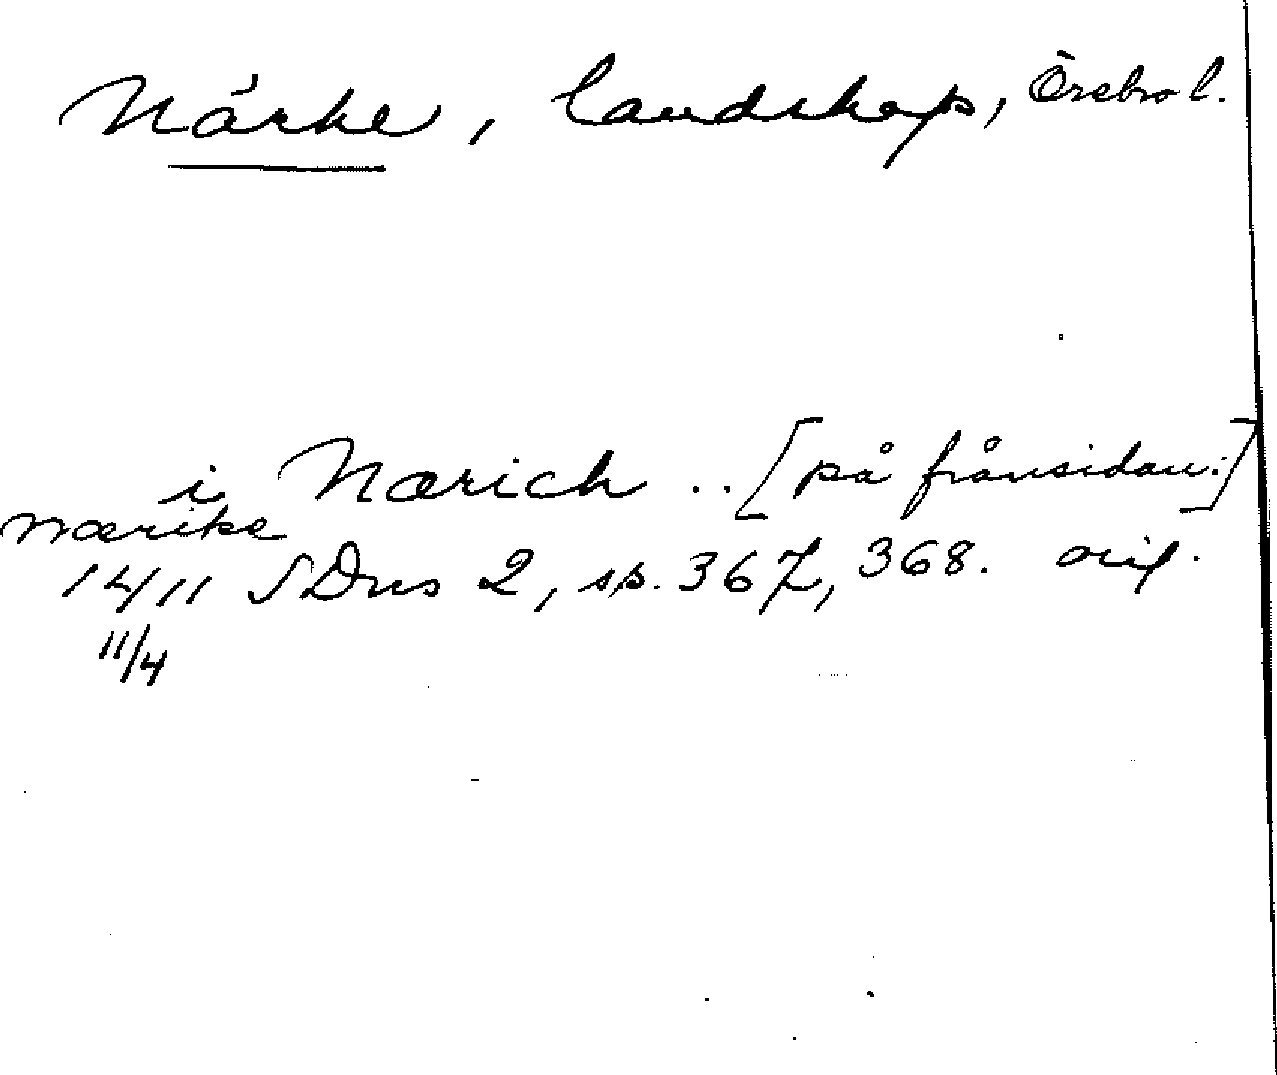 Närke, landskap, Örebro l.
i Nærich .. [på frånsidan:]
Nærike
1411 SDns 2, sp. 367, 368. orig.
11/4